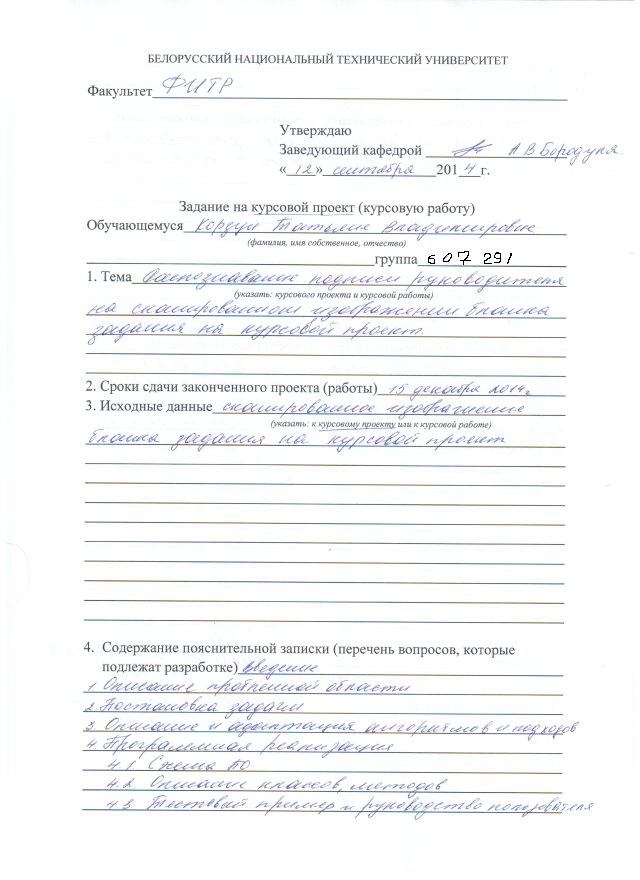 БЕЛОРУССКИЙ НАЦИОНАЛЬНЫЙ ТЕХНИЧЕСКИЙ УНИВЕРСИТЕТ
Факультет ФИТР
Утверждаю
Заведующий кафедрой А В Бородуля.
« 12 » сентября 2014 г.
Задание на курсовой проект (курсовую работу)
Обучающемуся Корзун Татьяне Владимировне
(фамилия, имя собственное, отчество)
группа 607 291
1. Тема Распознавание подписи руководителя
(указать: курсового проекта и курсовой работы)
на сканированном изображении бланка
задания на курсовой проект.
2. Сроки сдачи законченного проекта (работы) 15 декабря 2014 г
3. Исходные данные сканированное изображение
(указать: к курсовому проекту или к курсовой работе)
бланка задания на курсовой проект
4. Содержание пояснительной записки (перечень вопросов, которые
подлежат разработке) введение
1 Описание проблемной области
2 Постановка задачи
3 Описание и адаптация алгоритмов и подходов
4 Программная реализация
4.1 Схема ПО
4.2 Описание классов, методов
4.3 Тестовый пример и руководство пользователя